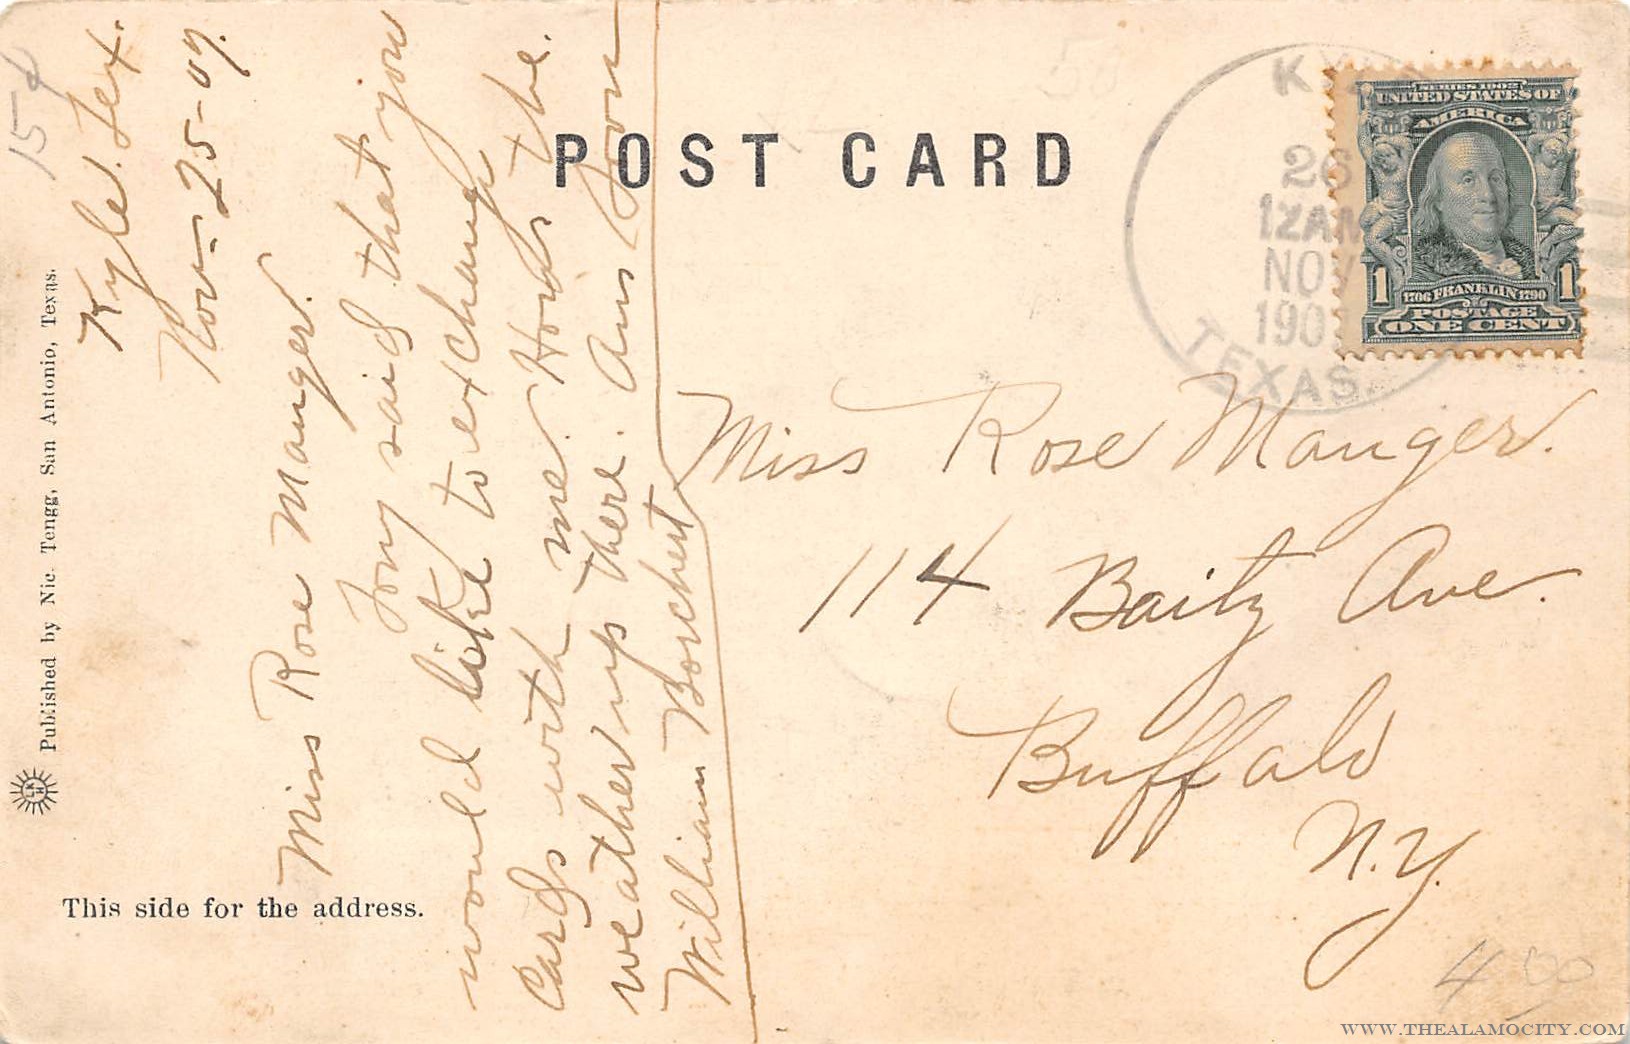 POST CARD
KYLE
26
12 AM
NOV
190
TEXAS.
SERIES 1902
UNITED STATES OF
AMERICA
1 1706 FRANKLIN 1790 1
POSTAGE
ONE CENT
Kyle. Tex.
Nov-25-07.
Miss Rose Manger.
Tony said that you
would like to exchange
cards with me. Hows the
weather up there. Ans Soon
William Borchert
Miss Rose Manger.
114 Baitz Ave.
Buffalo
N.Y.
This side for the address.
Published by Nic. Tengg, San Antonio, Texas.
15¢
50
4 00
WWW.THEALAMOCITY.COM